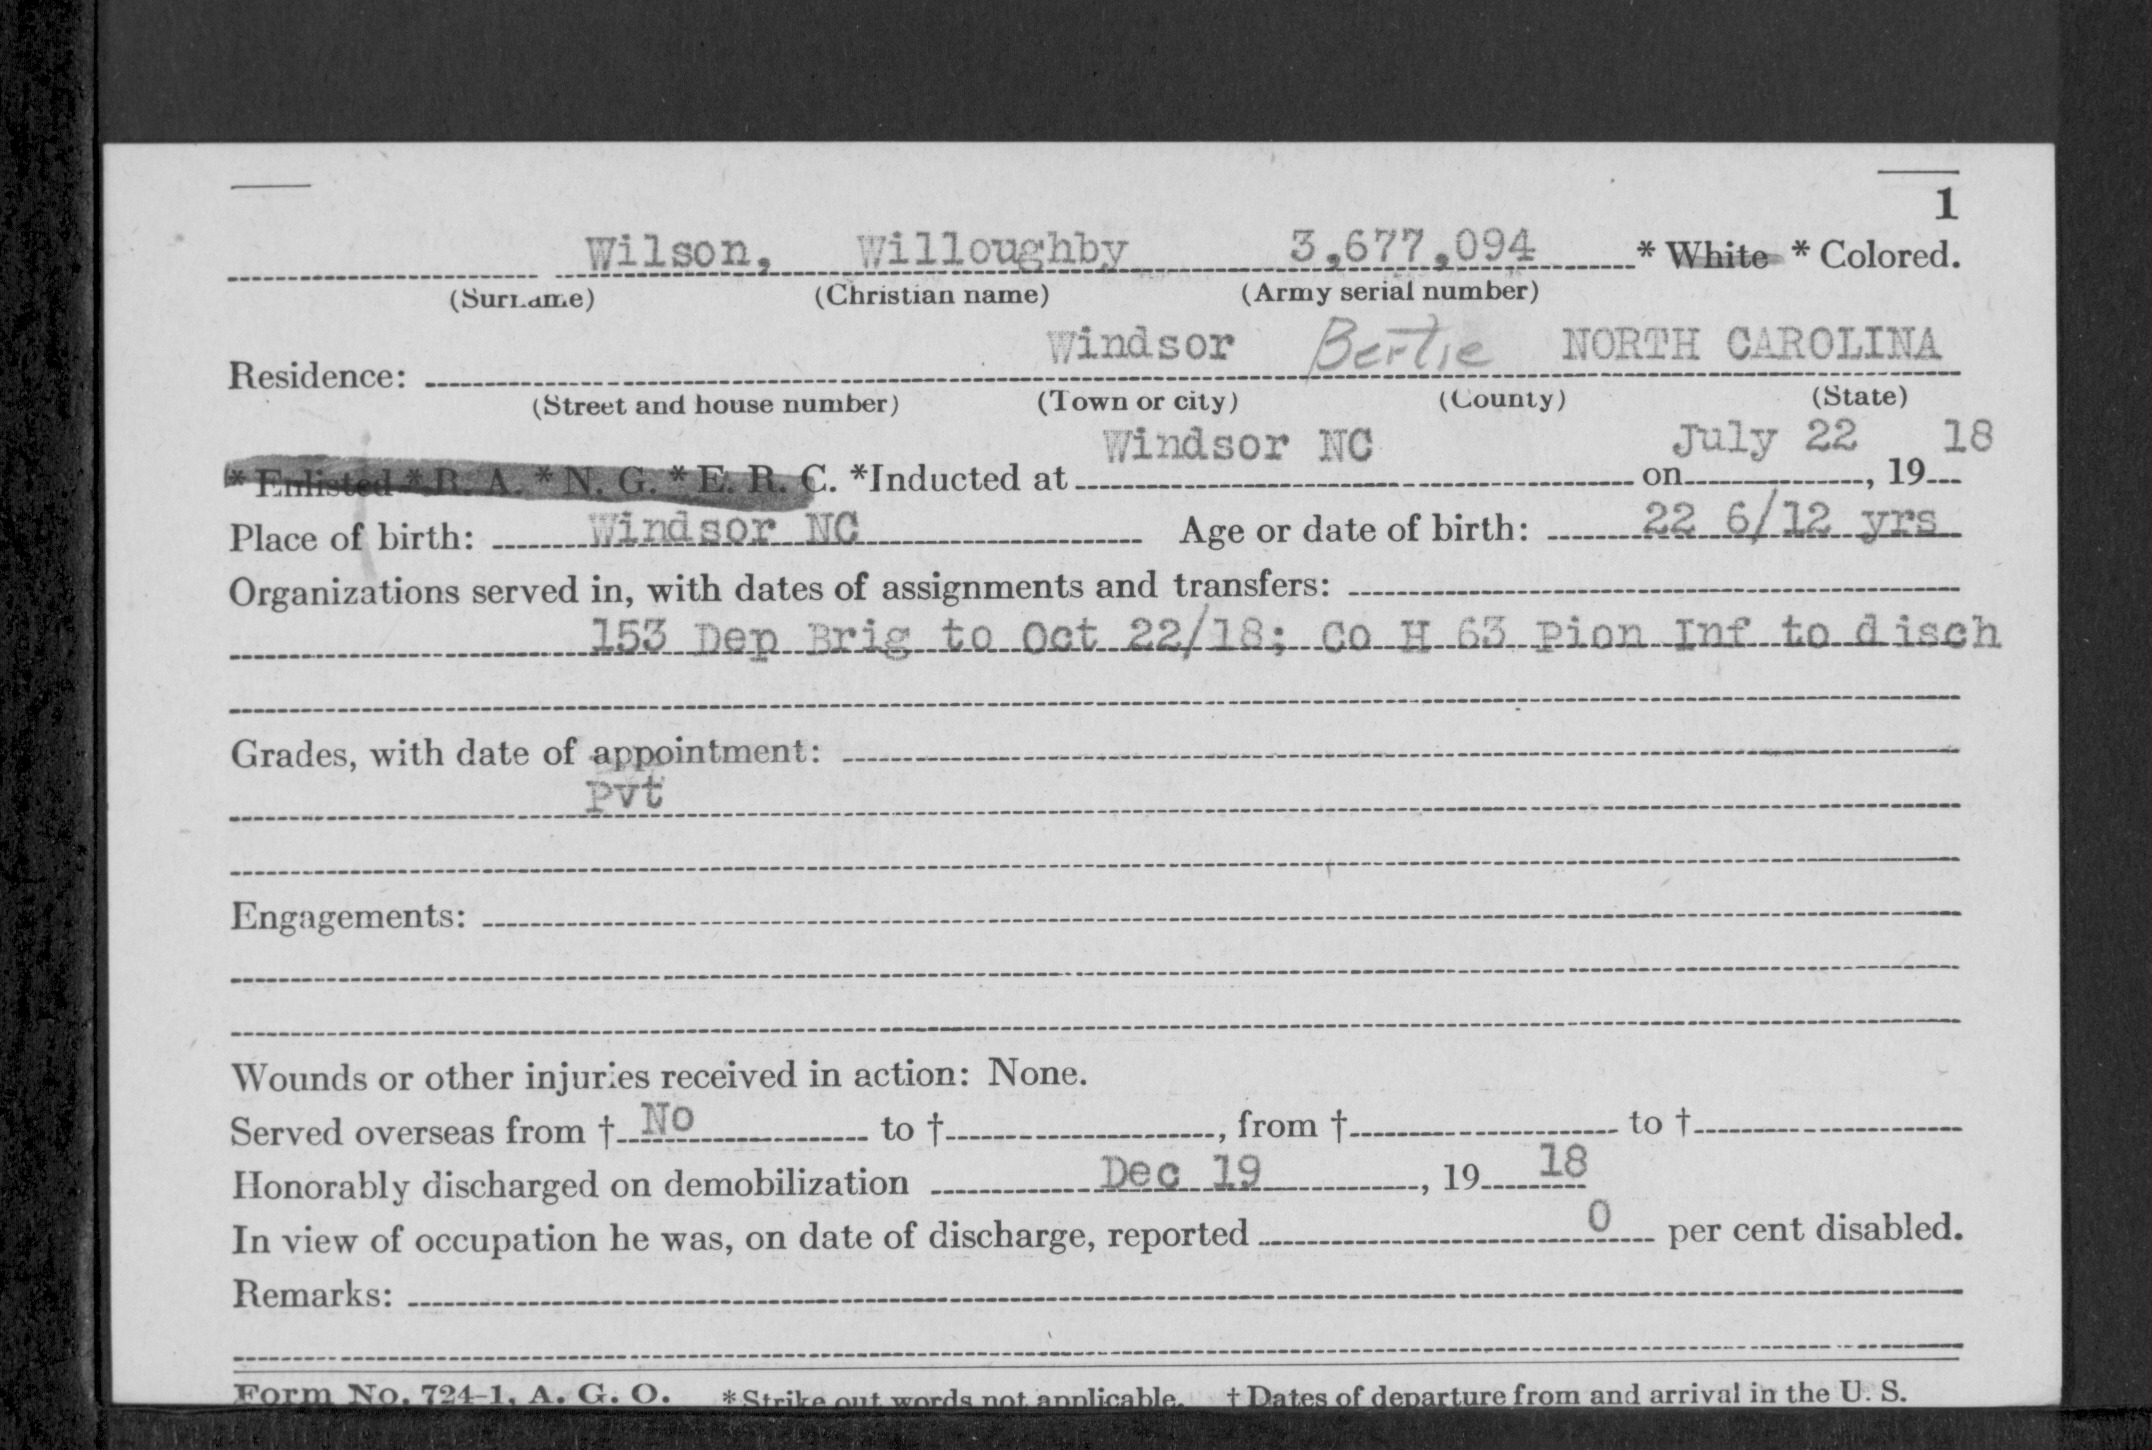 1
Wilson, Willoughby 3,677,094 * White * Colored.
(Surname) (Christian name) (Army serial number)
Windsor Bertie NORTH CAROLINA
Residence:
(Street and house number) (Town or city) (County) (State)
Windsor NC July 22 18
* Enlisted * R. A. * N. G. * E. R. C. *Inducted at on , 19
Place of birth: Windsor NC Age or date of birth: 22 6/12 yrs
Organizations served in, with dates of assignments and transfers:
153 Dep Brig to Oct 22/18; Co H 63 Pion Inf to disch
Grades, with date of appointment:
Pvt
Engagements:
Wounds or other injuries received in action: None.
Served overseas from † No to † , from † to †
Honorably discharged on demobilization Dec 19 , 19 18
In view of occupation he was, on date of discharge, reported 0 per cent disabled.
Remarks:
Form No. 724-1, A. G. O. * Strike out words not applicable. † Dates of departure from and arrival in the U. S.